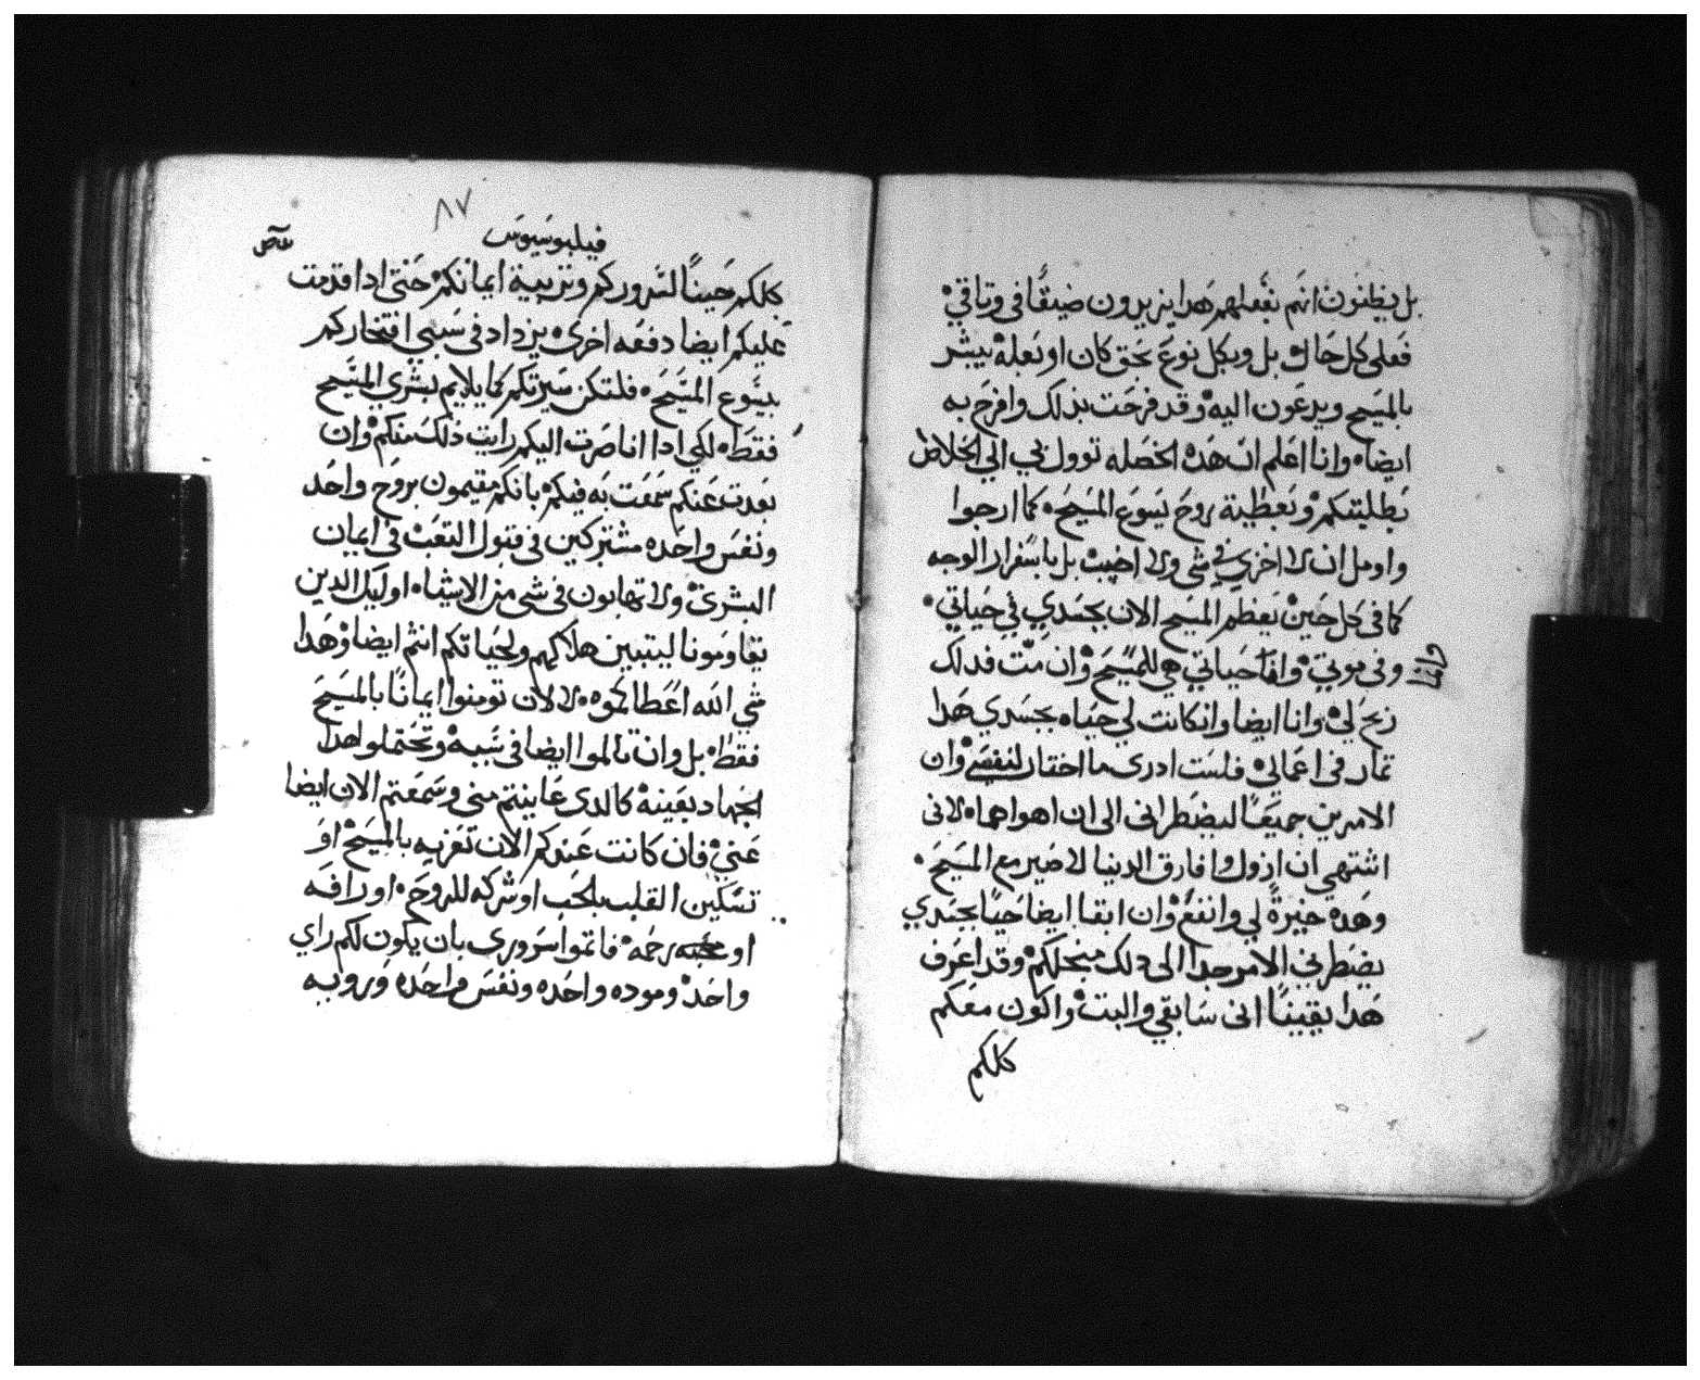 بل يظنون انهم بفعلهم هدا يزيدون ضيقًا في وتاقي
فعلى كل حال بل وبكل نوع بحق كان او بعله يبشر
بالمسيح ويدعون اليه وقد فرحت بذلك وافرح به
ايضا وانا اعلم ان هده الخصله توول بي الي الخلاص
بطلبتكم وبعطية روح يسوع المسيح كما ارجوا
واومل ان لا اخزي في شي ولا اخيب بل باسفرار الوجه
كما في كل حين يعظم المسيح الان بجسدي في حياتي
وفي موتي وانما حياتي هي للمسيح وان مت فدلك
ربح لي وانا ايضا وانكانت لي حياه بجسدي هدا
تمار في اعمالي فلست ادرى ما اختار لنفسي وان
الامرين جميعًا ليضطراني الى ان اهواهما لاني
اشتهي ان ازول وافارق الدنيا لاصير مع المسيح
وهده خيرة لي وانفع وان ابقا ايضا حيًا بجسدي
يضطرني الامر جدا الى دلك من اجلكم وقد اعرف
هدا يقينًا انى سابقي والبت واكون معكم
كلكم
٨٧
فيلبوسيوس
كلكم حينًا لسروركم وتربية ايمانكم حتى ادا قدمت
عليكم ايضا دفعه اخرى يزداد في سببي افتخاركم
بيسوع المسيح فلتكن سيرتكم كما يلايم بشري المسيح
فقط لكي ادا انا صرت اليكم رايت ذلك منكم وان
بعدت عنكم سمعت به فيكم بانكم مقيمون بروح واحد
ونفس واحده مشتركين في قبول التعب في ايمان
البشرى ولا تهابون في شي من الاشياء اوليك الدين
يقاومونا ليتبين هلاكهم ولحياتكم انتم ايضا وهدا
شي الله اعطاكموه لا لان تومنوا ايمانًا بالمسيح
فقط بل وان تالموا ايضا في سببه وتحتملوا هدا
الجهاد بعينه كالدى عاينتم مني وسمعتم الان ايضا
عني فان كانت عندكم الان تعزيه بالمسيح او
تسكين القلب بالحب او شركه للروح او رافه
او محبه رحمه فاتموا سرورى بان يكون لكم راي
واحد وموده واحده ونفس واحده ورويه